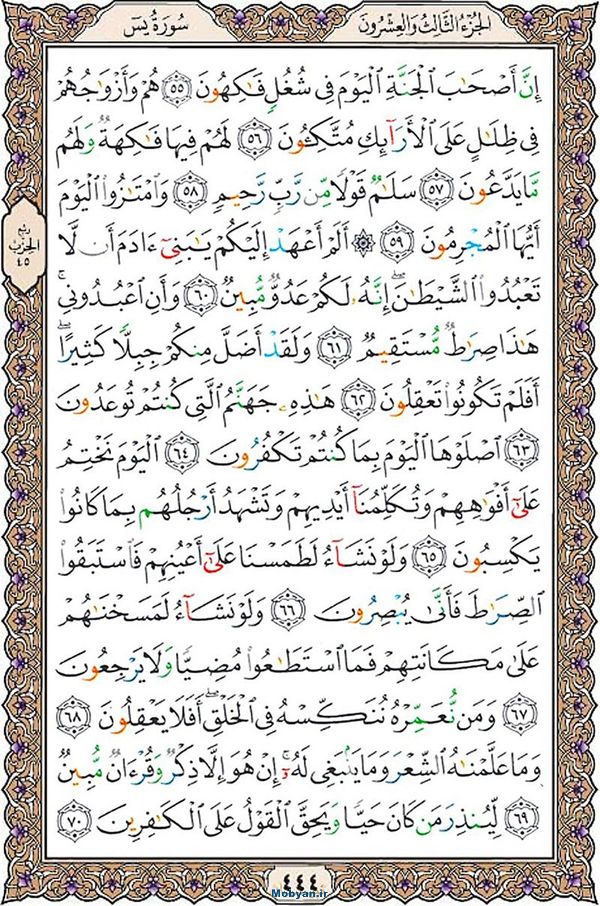 سُورَةُ يسٓ
الجُزءُ الثَّالِثُ وَالعِشرُونَ
إِنَّ أَصْحَابَ الْجَنَّةِ الْيَوْمَ فِي شُغُلٍ فَاكِهُونَ ﴿٥٥﴾ هُمْ وَأَزْوَاجُهُمْ
فِي ظِلَالٍ عَلَى الْأَرَائِكِ مُتَّكِئُونَ ﴿٥٦﴾ لَهُمْ فِيهَا فَاكِهَةٌ وَلَهُمْ
مَّا يَدَّعُونَ ﴿٥٧﴾ سَلَامٌ قَوْلًا مِّن رَّبٍّ رَّحِيمٍ ﴿٥٨﴾ وَامْتَازُوا الْيَوْمَ
أَيُّهَا الْمُجْرِمُونَ ﴿٥٩﴾ ۞ أَلَمْ أَعْهَدْ إِلَيْكُمْ يَا بَنِي ءَادَمَ أَن لَّا
تَعْبُدُوا الشَّيْطَانَ ۖ إِنَّهُ لَكُمْ عَدُوٌّ مُّبِينٌ ﴿٦٠﴾ وَأَنِ اعْبُدُونِي ۚ
هَٰذَا صِرَاطٌ مُّسْتَقِيمٌ ﴿٦١﴾ وَلَقَدْ أَضَلَّ مِنكُمْ جِبِلًّا كَثِيرًا ۖ
أَفَلَمْ تَكُونُوا تَعْقِلُونَ ﴿٦٢﴾ هَٰذِهِ جَهَنَّمُ الَّتِي كُنتُمْ تُوعَدُونَ
﴿٦٣﴾ اصْلَوْهَا الْيَوْمَ بِمَا كُنتُمْ تَكْفُرُونَ ﴿٦٤﴾ الْيَوْمَ نَخْتِمُ
عَلَىٰ أَفْوَاهِهِمْ وَتُكَلِّمُنَا أَيْدِيهِمْ وَتَشْهَدُ أَرْجُلُهُم بِمَا كَانُوا
يَكْسِبُونَ ﴿٦٥﴾ وَلَوْ نَشَاءُ لَطَمَسْنَا عَلَىٰ أَعْيُنِهِمْ فَاسْتَبَقُوا
الصِّرَاطَ فَأَنَّىٰ يُبْصِرُونَ ﴿٦٦﴾ وَلَوْ نَشَاءُ لَمَسَخْنَاهُمْ
عَلَىٰ مَكَانَتِهِمْ فَمَا اسْتَطَاعُوا مُضِيًّا وَلَا يَرْجِعُونَ
﴿٦٧﴾ وَمَن نُّعَمِّرْهُ نُنَكِّسْهُ فِي الْخَلْقِ ۖ أَفَلَا يَعْقِلُونَ ﴿٦٨﴾
وَمَا عَلَّمْنَاهُ الشِّعْرَ وَمَا يَنبَغِي لَهُ ۚ إِنْ هُوَ إِلَّا ذِكْرٌ وَقُرْءَانٌ مُّبِينٌ
﴿٦٩﴾ لِّيُنذِرَ مَن كَانَ حَيًّا وَيَحِقَّ الْقَوْلُ عَلَى الْكَافِرِينَ ﴿٧٠﴾
ربع
الحزب
٤٥
٤٤٤
Mobyan.ir